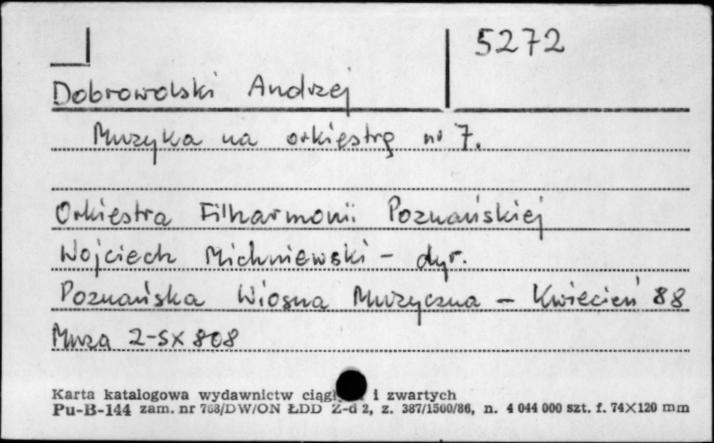 5272
Dobrowolski Andrzej
Muzyka na orkiestrę nr 7.
Orkiestra Filharmonii Poznańskiej
Wojciech Michniewski - dyr.
Poznańska Wiosna Muzyczna - Kwiecień 88
Muza 2-SX 808
Karta katalogowa wydawnictw i zwartych
Pu-B-144 zam. nr 768/DW/ON ŁDD Z-d 2, z. 387/1500/86, n. 4 044 000 szt. f. 74×120 mm